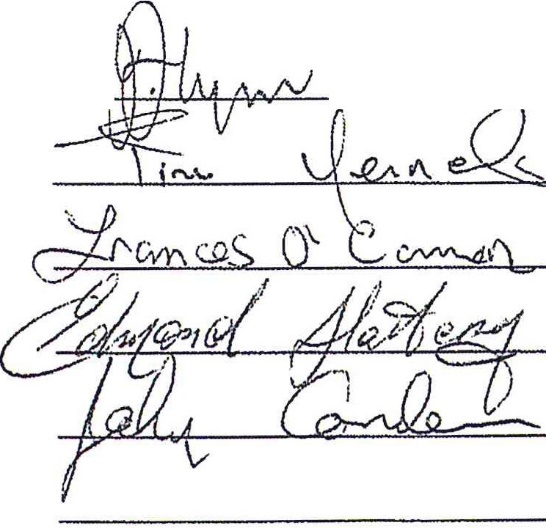 Flynn
Tim
Frances O' Connor
Edmond Slattery
John Condon